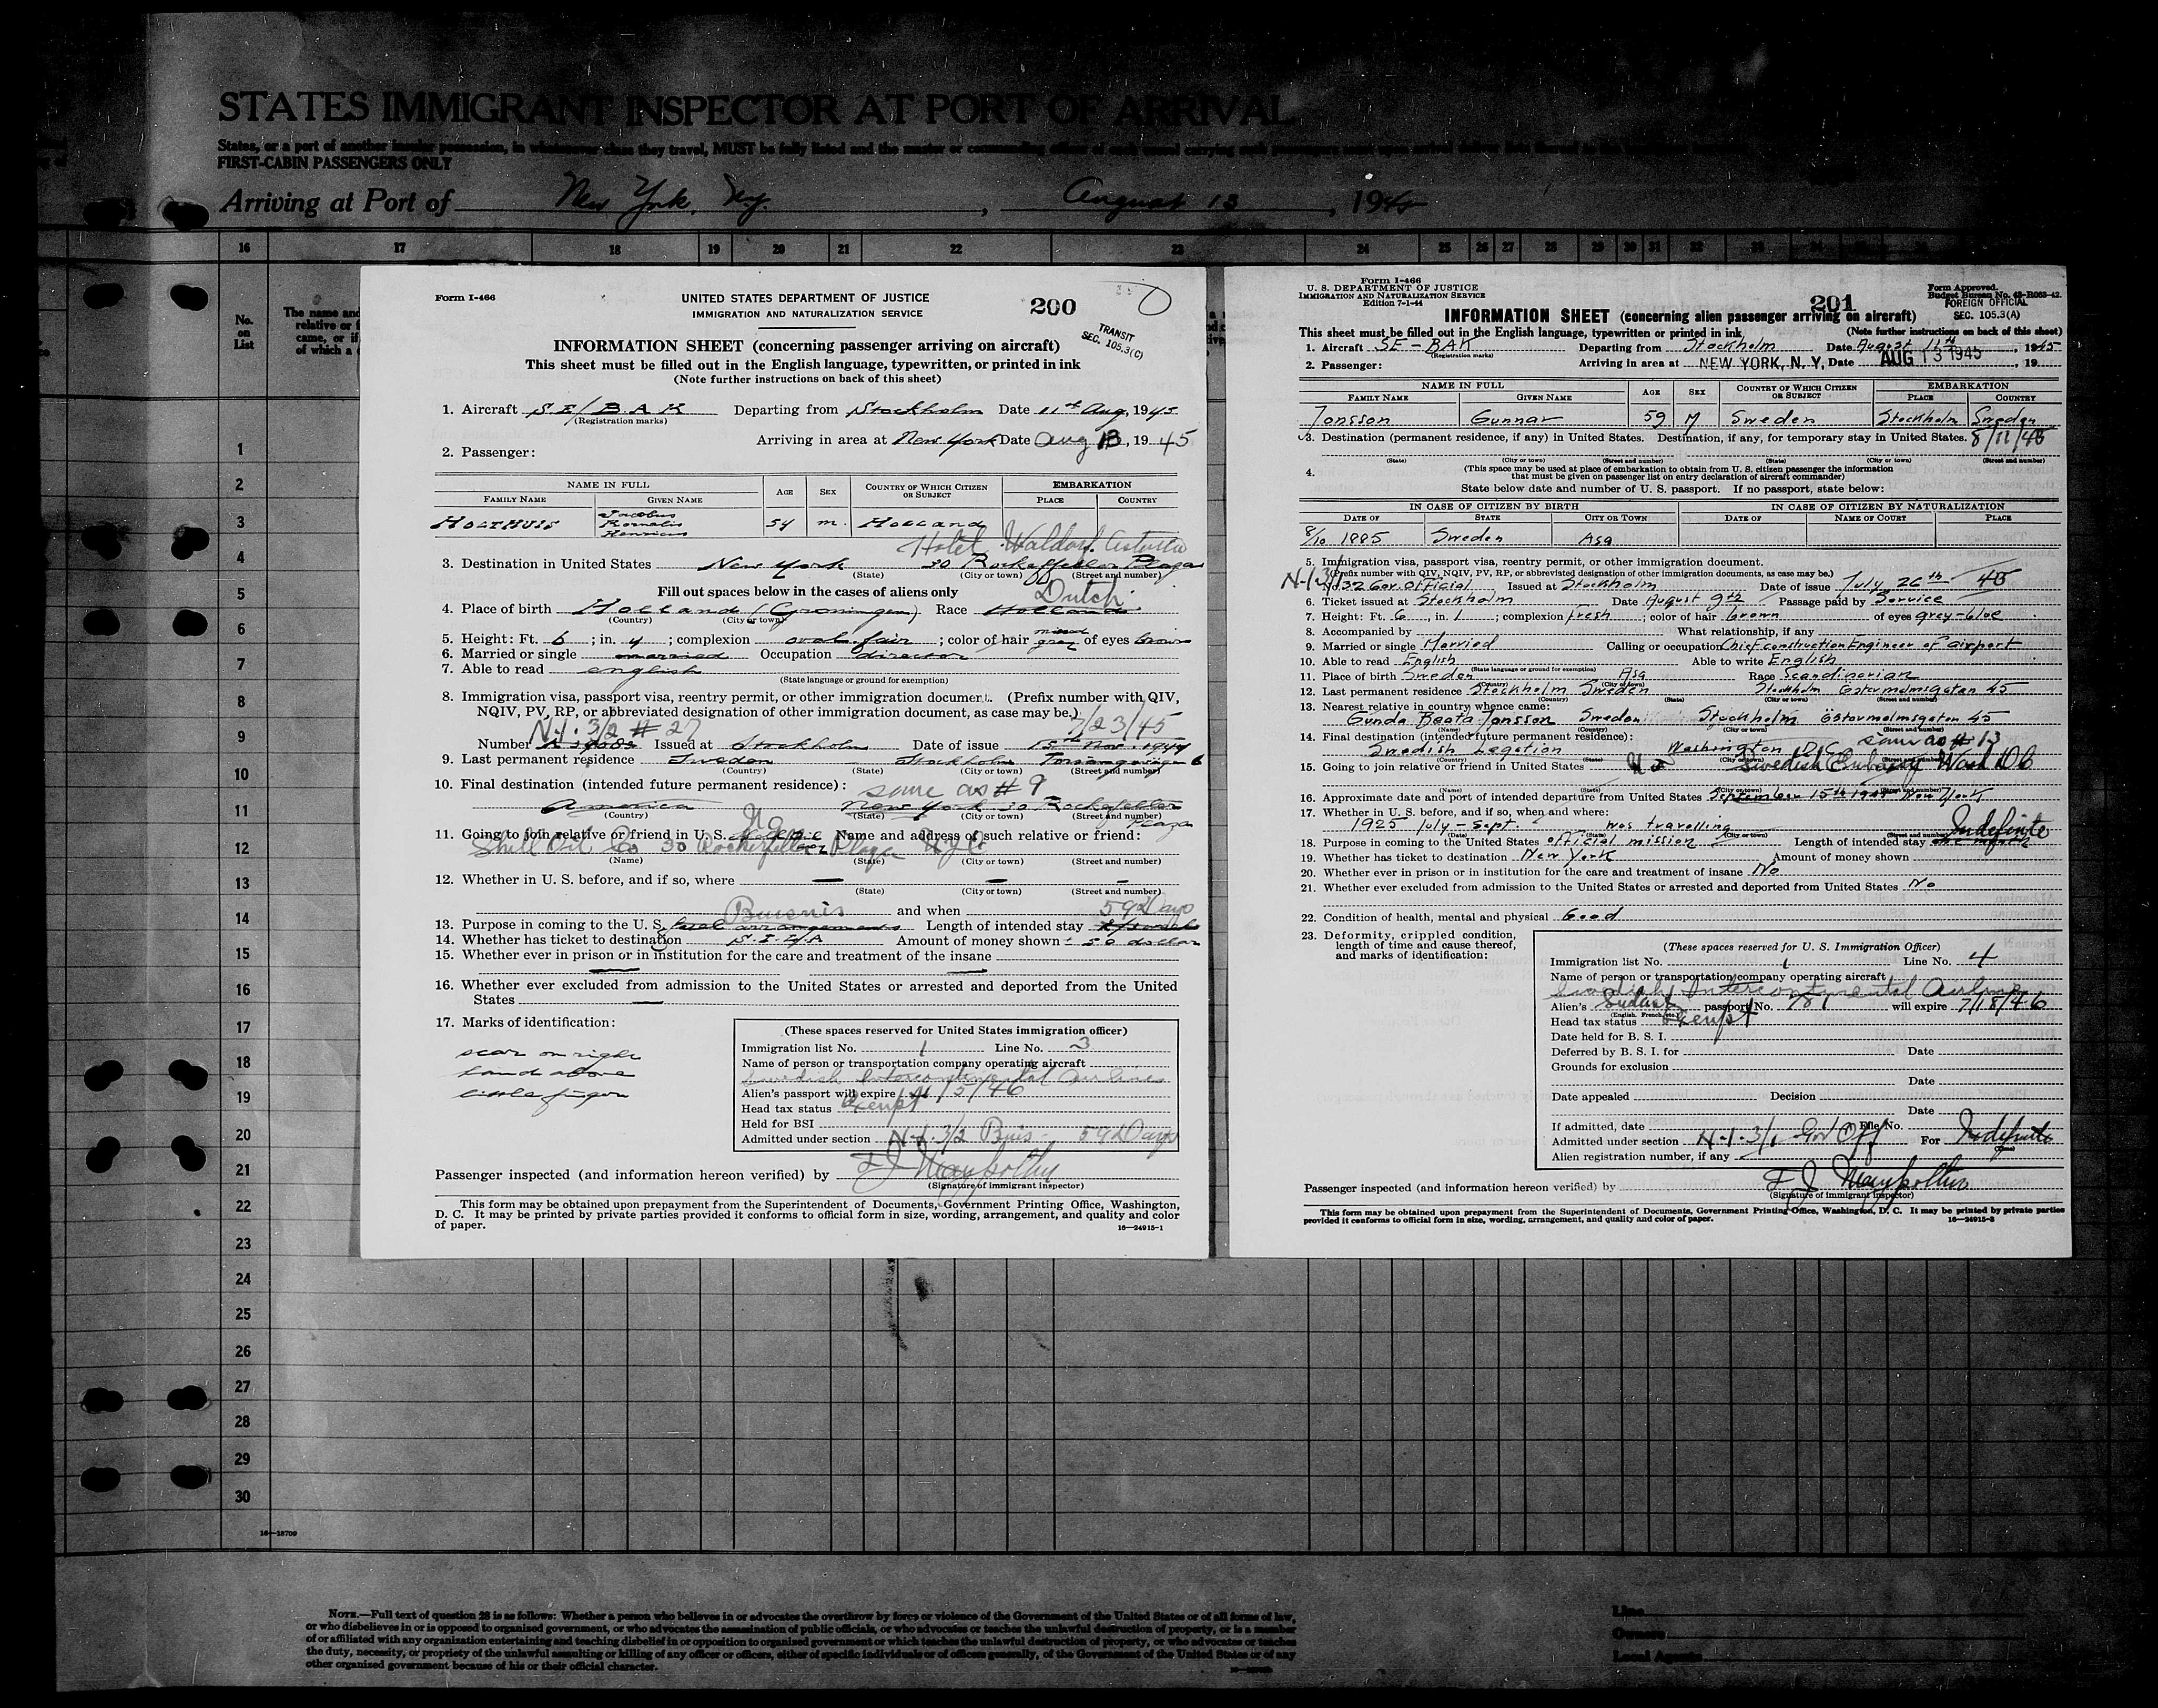 STATES IMMIGRANT INSPECTOR AT PORT OF ARRIVAL
States, or a port of another insular possession, in whatsoever class they travel, MUST be fully listed and the master or commanding officer of each vessel carrying such passengers must upon arrival deliver lists thereof to the
FIRST-CABIN PASSENGERS ONLY
Arriving at Port of New York, N.Y., August 13, 1945
16 17 18 19 20 21 22 23 24 25 26 27 28 29 30 31 32 33 34
No. on List
The name and
relative or f
came, or if
of which a c
1
2
3
4
5
6
7
8
9
10
11
12
13
14
15
16
17
18
19
20
21
22
23
24
25
26
27
28
29
30
16—18709
Form I-466
UNITED STATES DEPARTMENT OF JUSTICE
IMMIGRATION AND NATURALIZATION SERVICE
200
TRANSIT
SEC. 105.3(C)
INFORMATION SHEET (concerning passenger arriving on aircraft)
This sheet must be filled out in the English language, typewritten, or printed in ink
(Note further instructions on back of this sheet)
1. Aircraft SE/BAK Departing from Stockholm Date 11th Aug, 1945
(Registration marks)
Arriving in area at New York Date Aug 13, 1945
2. Passenger:
NAME IN FULL AGE SEX COUNTRY OF WHICH CITIZEN OR SUBJECT EMBARKATION
FAMILY NAME GIVEN NAME PLACE COUNTRY
HOLTHUIS Jacobus Kornelis Henricus 54 m. Holland
Hotel Waldorf Astoria
3. Destination in United States New York 30 Rockefeller Plaza
(State) (City or town) (Street and number)
Fill out spaces below in the cases of aliens only
Dutch
4. Place of birth Holland (Groningen) Race Holland
(Country) (City or town)
5. Height: Ft. 6; in. 4; complexion oval fair; color of hair mixed gray of eyes brown
6. Married or single married Occupation director
7. Able to read english
(State language or ground for exemption)
8. Immigration visa, passport visa, reentry permit, or other immigration document. (Prefix number with QIV,
NQIV, PV, RP, or abbreviated designation of other immigration document, as case may be.)
N-1.3/2 #27 7/23/45
Number Issued at Stockholm Date of issue 15th Nov. 1944
9. Last permanent residence Sweden Stockholm 6
(Country) (State) (City or town) (Street and number)
10. Final destination (intended future permanent residence): same as #9
America New York 30 Rockefeller Plaza
(Country) (State) (City or town) (Street and number)
11. Going to join relative or friend in U.S. No Name and address of such relative or friend:
Shell Oil Co 30 Rockefeller Plaza NYC
(Name) (State) (City or town) (Street and number)
12. Whether in U. S. before, and if so, where
(State) (City or town) (Street and number)
and when
Buisnis 59 Days
13. Purpose in coming to the U. S. arrangements Length of intended stay
14. Whether has ticket to destination S.I.L.A Amount of money shown 50 dollar
15. Whether ever in prison or in institution for the care and treatment of the insane
16. Whether ever excluded from admission to the United States or arrested and deported from the United
States
17. Marks of identification:
scar on right
hand above
little finger
(These spaces reserved for United States immigration officer)
Immigration list No. 1 Line No. 3
Name of person or transportation company operating aircraft
Swedish Intercontinental Airlines
Alien's passport will expire 11/5/46
Head tax status Exempt
Held for BSI
Admitted under section N-1.3/2 Buis - 59 Days
Passenger inspected (and information hereon verified) by
(Signature of immigrant inspector)
This form may be obtained upon prepayment from the Superintendent of Documents, Government Printing Office, Washington,
D. C. It may be printed by private parties provided it conforms to official form in size, wording, arrangement, and quality and color
of paper.
16—24915-1
Form I-466
U. S. DEPARTMENT OF JUSTICE
IMMIGRATION AND NATURALIZATION SERVICE
Edition 7-1-44
201
Form Approved.
Budget Bureau No. 43-R063-42.
FOREIGN OFFICIAL
SEC. 105.3(A)
INFORMATION SHEET (concerning alien passenger arriving on aircraft)
This sheet must be filled out in the English language, typewritten or printed in ink (Note further instructions on back of this sheet)
1. Aircraft SE-BAK Departing from Stockholm Date August 11th, 1945
(Registration marks)
2. Passenger: Arriving in area at NEW YORK, N. Y. Date AUG 13 1945, 19
NAME IN FULL AGE SEX COUNTRY OF WHICH CITIZEN OR SUBJECT EMBARKATION
FAMILY NAME GIVEN NAME PLACE COUNTRY
Jonsson Gunnar 59 M Sweden Stockholm Sweden
3. Destination (permanent residence, if any) in United States. Destination, if any, for temporary stay in United States. 8/11/45
(State) (City or town) (Street and number) (State) (City or town) (Street and number)
4. (This space may be used at place of embarkation to obtain from U. S. citizen passenger the information
that must be given on passenger list on entry declaration of aircraft commander)
State below date and number of U. S. passport. If no passport, state below:
IN CASE OF CITIZEN BY BIRTH IN CASE OF CITIZEN BY NATURALIZATION
DATE OF STATE CITY OR TOWN DATE OF NAME OF COURT PLACE
8/10 1885 Sweden Asa
5. Immigration visa, passport visa, reentry permit, or other immigration document.
(Prefix number with QIV, NQIV, PV, RP, or abbreviated designation of other immigration documents, as case may be.)
N-1.3/1 132 Gov. Official Issued at Stockholm Date of issue July 26th 45
6. Ticket issued at Stockholm Date August 9th Passage paid by Service
7. Height: Ft. 6, in. 1; complexion fresh; color of hair brown of eyes grey-blue
8. Accompanied by What relationship, if any
9. Married or single Married Calling or occupation Chief construction Engineer of airport
10. Able to read English Able to write English
(State language or ground for exemption)
11. Place of birth Sweden Asa Race Scandinavian
(Country) (City or town)
12. Last permanent residence Stockholm Sweden Stockholm Östermalmsgatan 45
(Country) (State) (City or town) (Street and number)
13. Nearest relative in country whence came:
Gunda Beata Jonsson Sweden Stockholm Östermalmsgatan 45
(Name) (Country) (City or town) (Street and number)
14. Final destination (intended future permanent residence): same as # 13
Swedish Legation Washington D.C.
(Country) (City or town) (Street and number)
15. Going to join relative or friend in United States No Swedish Embassy Wash DC
(Name) (State) (City or town) (Street and number)
16. Approximate date and port of intended departure from United States September 15th 1945 New York
17. Whether in U. S. before, and if so, when and where:
1925 July - Sept. was travelling
(Date) (State) (City or town) (Street and number)
Indefinite
18. Purpose in coming to the United States official mission Length of intended stay one month
19. Whether has ticket to destination New York Amount of money shown
20. Whether ever in prison or in institution for the care and treatment of insane No
21. Whether ever excluded from admission to the United States or arrested and deported from United States No
22. Condition of health, mental and physical Good
23. Deformity, crippled condition,
length of time and cause thereof,
and marks of identification:
(These spaces reserved for U. S. Immigration Officer)
Immigration list No. 1 Line No. 4
Name of person or transportation company operating aircraft
Swedish Intercontinental Airlines
Alien's Swedish passport No. 781 will expire 7/18/46
(English, French, etc.)
Head tax status Exempt
Date held for B. S. I.
Deferred by B. S. I. for Date
Grounds for exclusion
Date
Date appealed Decision
Date
If admitted, date File No.
Admitted under section N-1-3/1 Gov Off For Indefinite
(Time)
Alien registration number, if any
Passenger inspected (and information hereon verified) by
(Signature of immigrant inspector)
This form may be obtained upon prepayment from the Superintendent of Documents, Government Printing Office, Washington, D. C. It may be printed by private parties
provided it conforms to official form in size, wording, arrangement, and quality and color of paper.
16—24915-3
NOTE.—Full text of question 28 is as follows: Whether a person who believes in or advocates the overthrow by force or violence of the Government of the United States or of all forms of law,
or who disbelieves in or is opposed to organized government, or who advocates the assassination of public officials, or who advocates or teaches the unlawful destruction of property, or is a member
of or affiliated with any organization entertaining and teaching disbelief in or opposition to organized government or which teaches the unlawful destruction of property, or who advocates or teaches
the duty, necessity, or propriety of the unlawful assaulting or killing of any officer or officers, either of specific individuals or of officers generally, of the Government of the United States or of any
other organized government because of his or their official character.
Line
Owners
Local Agents